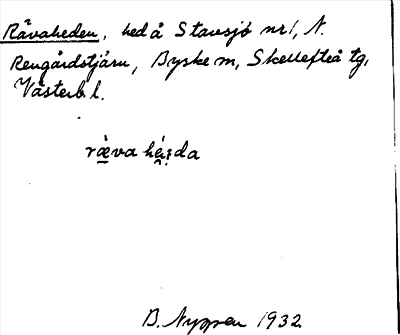 Rävaheden, hed å Stavsjö nr 1, N.
Rengårdstjärn, Byske sn, Skellefteå tg,
Västerb. l.
B. Nyman 1932